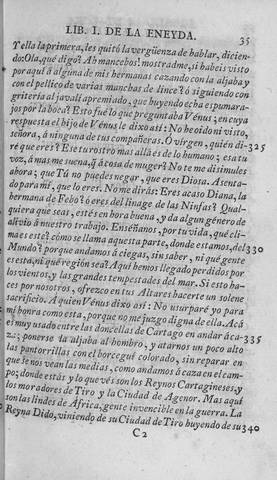 LIB. I. DE LA ENEYDA. 35
Y ella la primera, les quitó la verguenza de hablar, dicien-
do: Ola, què digo? Ah mancebos! mostradme, si habeis visto
por aqui á alguna de mis hermanas cazando con la aljaba y
con el pellico de varias manchas de lince? ó siguiendo con
gritería al javalí apremiado, que huyendo echa espumara-
jos por la boca? Esto fué lo que preguntaba Vénus; en cuya
respuesta el hijo de Vénus le dixo así: No he oido ni visto,
señora, á ninguna de tus compañeras. O virgen, quién di- 325
ré que eres? Ese tu rostro mas allá es de lo humano; esa tu
voz, á mas me suena, q̃ á cosa de muger? No te me disimules
ahora; que Tú no puedes negar, que eres Diosa. Asenta-
do para mí, que lo eres. No me dirás: Eres acaso Diana, la
hermana de Febo? ó eres del linage de las Ninfas? Qual-
quiera que seas, estés en bora buena, y da algun género de
alivio á nuestro trabajo. Enséñanos, por tu vida, qué cli-
ma es este? cómo se llama aquesta parte, donde estamos, del 330
Mundo? porque andamos á ciegas, sin saber, ni qué gente
es esta, ni qué region sea? Aqui hemos llegado perdidos por
los vientos, y las grandes tempestades del mar. Si esto ha-
ces por nosotros, ofrezco en tus Altares hacerte un solene
sacrificio. A quien Vénus dixo así: No usurparé yo para
mí honra como esta, porque no me juzgo digna de ella. Acá
es muy usado entre las doncellas de Cartago en andar á ca- 335
za; ponerse la aljaba al hombro, y atarnos un poco alto
las pantorrillas con el borceguí colorado, sin reparar en
que se nos vean las medias, como andamos á caza en el cam-
po; donde estás y lo que vés son los Reynos Cartagineses, y
los moradores de Tiro y la Ciudad de Agenor. Mas aqui
son las lindes de Africa, gente invencible en la guerra. La
Reyna Dido, viniendo de su Ciudad de Tiro huyendo de su 340
C 2